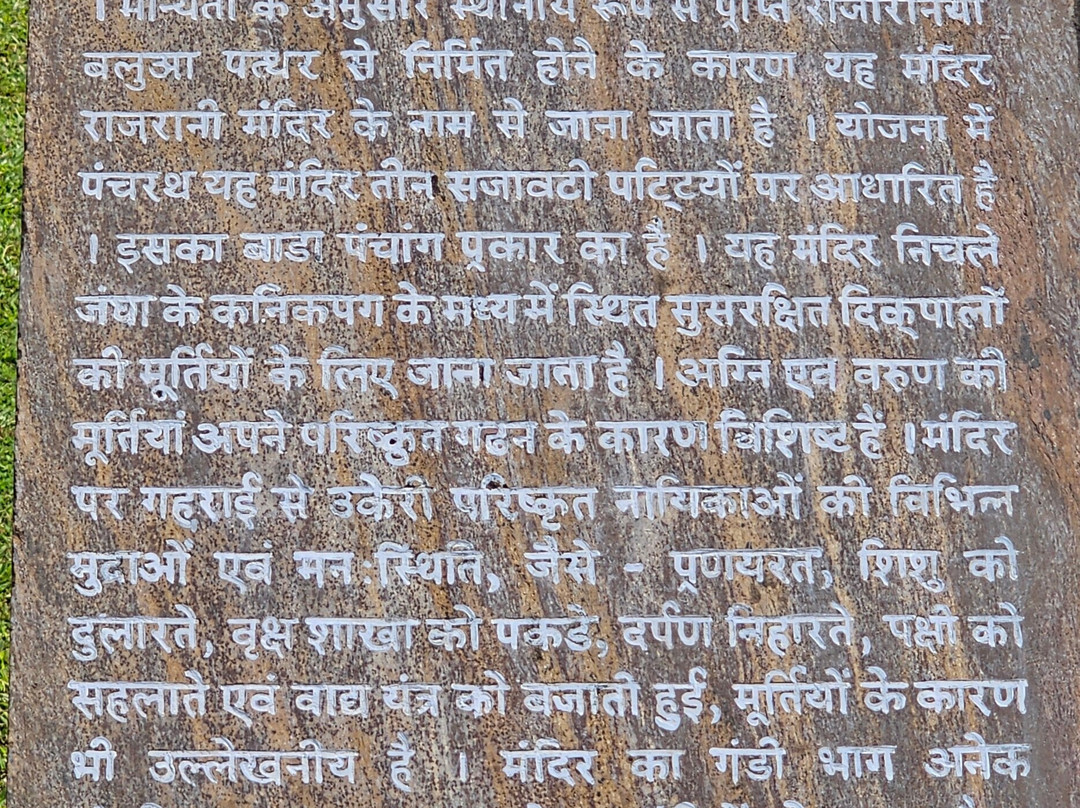 । मान्यता के अनुसार स्थानीय रूप से प्राप्त राजारानियां
बलुआ पत्थर से निर्मित होने के कारण यह मंदिर
राजरानी मंदिर के नाम से जाना जाता है । योजना में
पंचरथ यह मंदिर तीन सजावटी पट्टियों पर आधारित है
। इसका बाडा पंचांग प्रकार का है । यह मंदिर निचले
जंघा के कनिकपग के मध्य में स्थित सुसरक्षित दिक्पालों
की मूर्तियों के लिए जाना जाता है । अग्नि एवं वरुण की
मूर्तियां अपने परिष्कृत गढन के कारण विशिष्ट हैं । मंदिर
पर गहराई से उकेरी परिष्कृत नायिकाओं की विभिन्न
मुद्राओं एवं मन:स्थिति, जैसे - प्रणयरत, शिशु को
दुलारते, वृक्ष शाखा को पकडे, दर्पण निहारते, पक्षी को
सहलाते एवं वाद्य यंत्र को बजाती हुई, मूर्तियों के कारण
भी उल्लेखनीय है । मंदिर का गंडी भाग अनेक